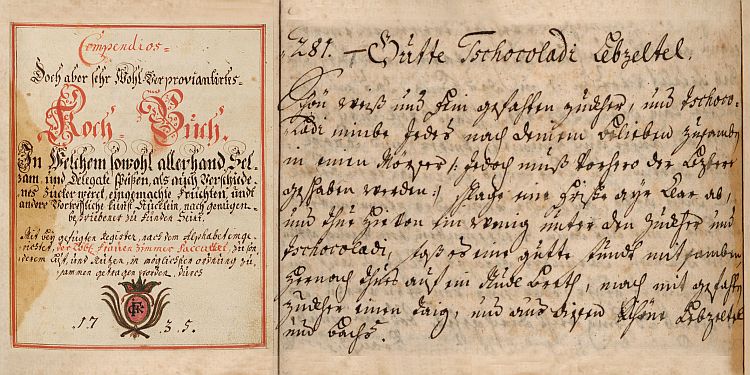 Compendios=
Doch aber sehr Wohl=Verproviantirtes=
Koch=Puch.
In Welchem sowohl allerhand Sel=
zam, und Delegate speißen, als auch Verschiede=
nes Zucker werck, eingemachte Früchten, undt
andere Vortreffliche kunst Stücklein, nach genügen
beschriebener zu Finden Seint.
Mit bey gefügten Register, nach dem Alphabet einge=
richtet,
derem Lust, und Nutzen, in möglichster ordnung zu=
sammen getragen worden,
17 35.
281. — Gutte Tschocoladi Lebzeltel.
Schön weiß und Fein gefähten zuckher, und Tschoco=
Ladi nimbe Jedes nach deinem belieben zusamben
in einen Morser /: jedoch muß Vorhero der Letztere
geschaben werden :/ schlage eine Frische ayr klar ab,
und thue hievon ein wenig unter den zuckher und
Tschocoladi, daß es eine gutte
hernach thues auf ein Nudl breth, mach mit gefähten
zuckher einen taig, und aus disen schöne Lebzeltel
und bachs.